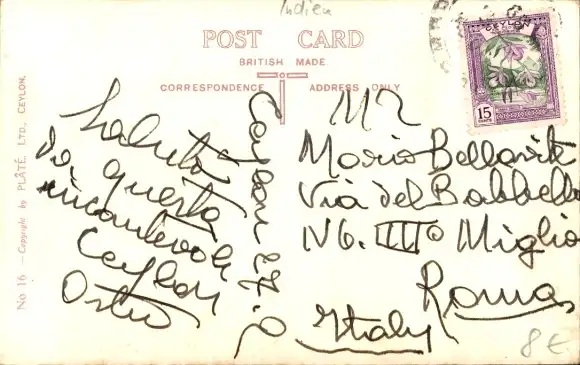 Indien
POST CARD
BRITISH MADE
CORRESPONDENCE ADDRESS ONLY
CEYLON
15
CENTS
No 16 — Copyright by PLÂTÉ, LTD., CEYLON.
Saluti
da questa
incantevole
Ceylon
Ceylon 27.
Mario
Via del
IIIo Miglio
Roma
Italy
8 €